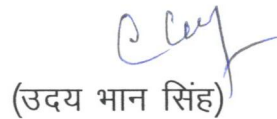 (उदय भान सिंह)